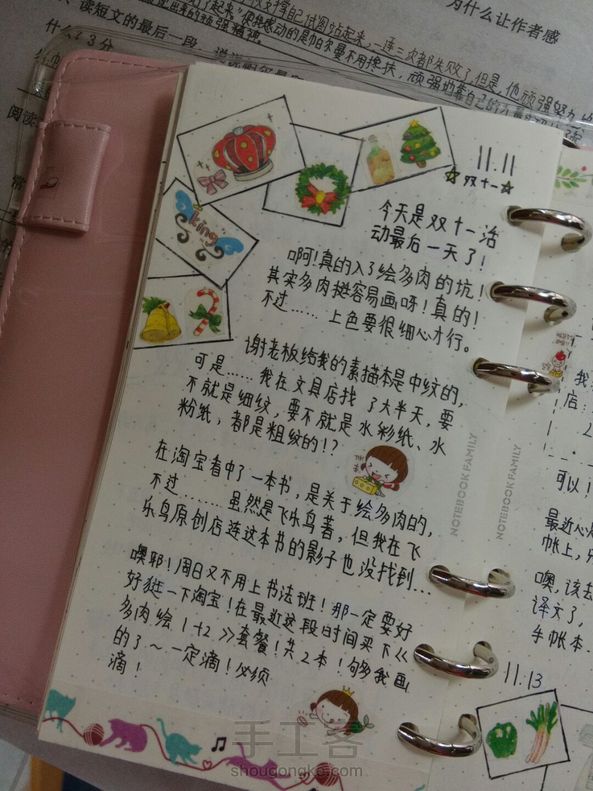 为什么让作者感
读短文的最后一段
什么？3分
阅读
11.11
☆双十一☆
今天是双十一活
动最后一天了！
啊！真的入了绘多肉的坑！
其实多肉挺容易画呀！真的！
不过……上色要很细心才行。
谢老板给我的素描本是中纹的，
可是……我在文具店找了大半天，要
不就是细纹，要不就是水彩纸、水
粉纸，都是粗纹的！？
在淘宝看中了一本书，是关于绘多肉的，
不过………虽然是飞乐鸟著，但我在飞
乐鸟原创店连这本书的影子也没找到…
噢耶！周日又不用上书法班！那一定要好
好逛一下淘宝！在最近这段时间买下《
多肉绘1+2》套餐！共2本！够我画
的了～一定滴！必须
滴！
King
NOTEBOOK FAMILY
NOTEBOOK FAMILY
我
店：
可以！
最近心
帐上，
噢，该去
译文了，
手帐本
11.13
手工客
shougongke.com